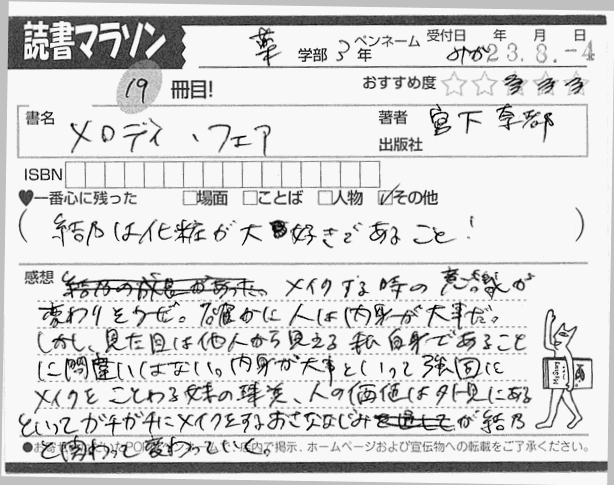 読書マラソン
薬 学部 3年 ペンネーム みか 受付日 年 月 日 23.8.-4
19 冊目!
おすすめ度 ☆☆☆☆☆
書名 メロディ・フェア
著者 宮下奈都
出版社
ISBN
♥一番心に残った □場面 □ことば □人物 ☑その他
(結乃は化粧が大好きであること!)
感想 結乃の成長があった。メイクする時の意識が
変わりそうだ。確かに人は内身が大事だ。
しかし、見た目は他人から見える私自身であること
に間違いはない。内身が大事といって強固に
メイクをことわる妹の珠美、人の価値は外見にある
といってガチガチにメイクをするおさななじみ が結乃
と関わって変わっていく。
●お寄せいただいたPO 店内で掲示、ホームページおよび宣伝物への転載をご了承ください。